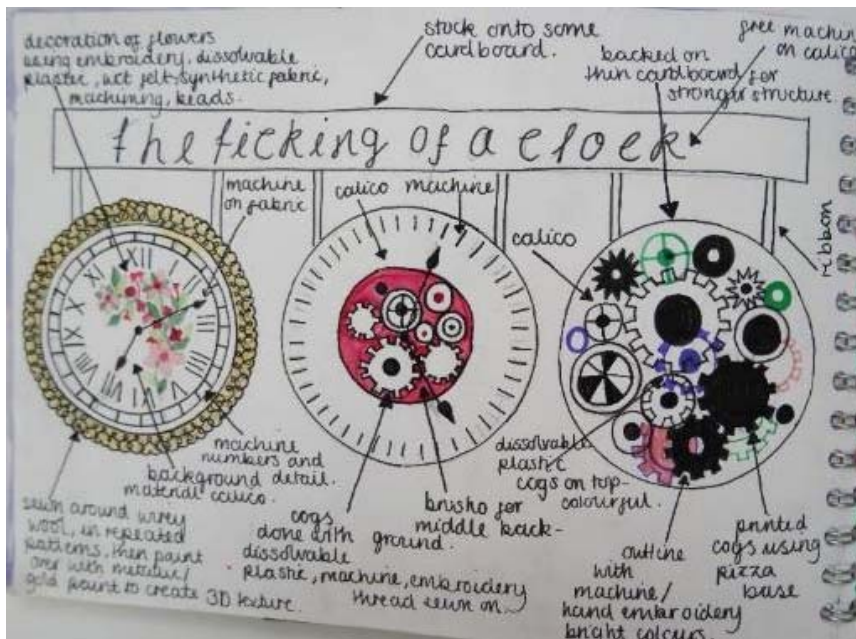 decoration of flowers
using embroidery, dissolvable
plastic, wet felt-synthetic fabric,
machining, beads.
stuck onto some
cardboard.
backed on
thin cardboard for
stronger structure.
free machine
on calico
the ticking of a clock
machine
on fabric
calico machine
calico
ribbon
XII
machine
numbers and
background detail.
material calico.
sewn around wirey
wool, in repeated
patterns, then paint
over with metallic/
gold paint to create 3D texture.
cogs
done with
dissolvable
plastic, machine, embroidery
thread sewn on
brusho for
middle back-
ground.
dissolvable
plastic
cogs on top-
colourful.
outline
with
machine/
hand embroidery
bright colours
printed
cogs using
pizza
base